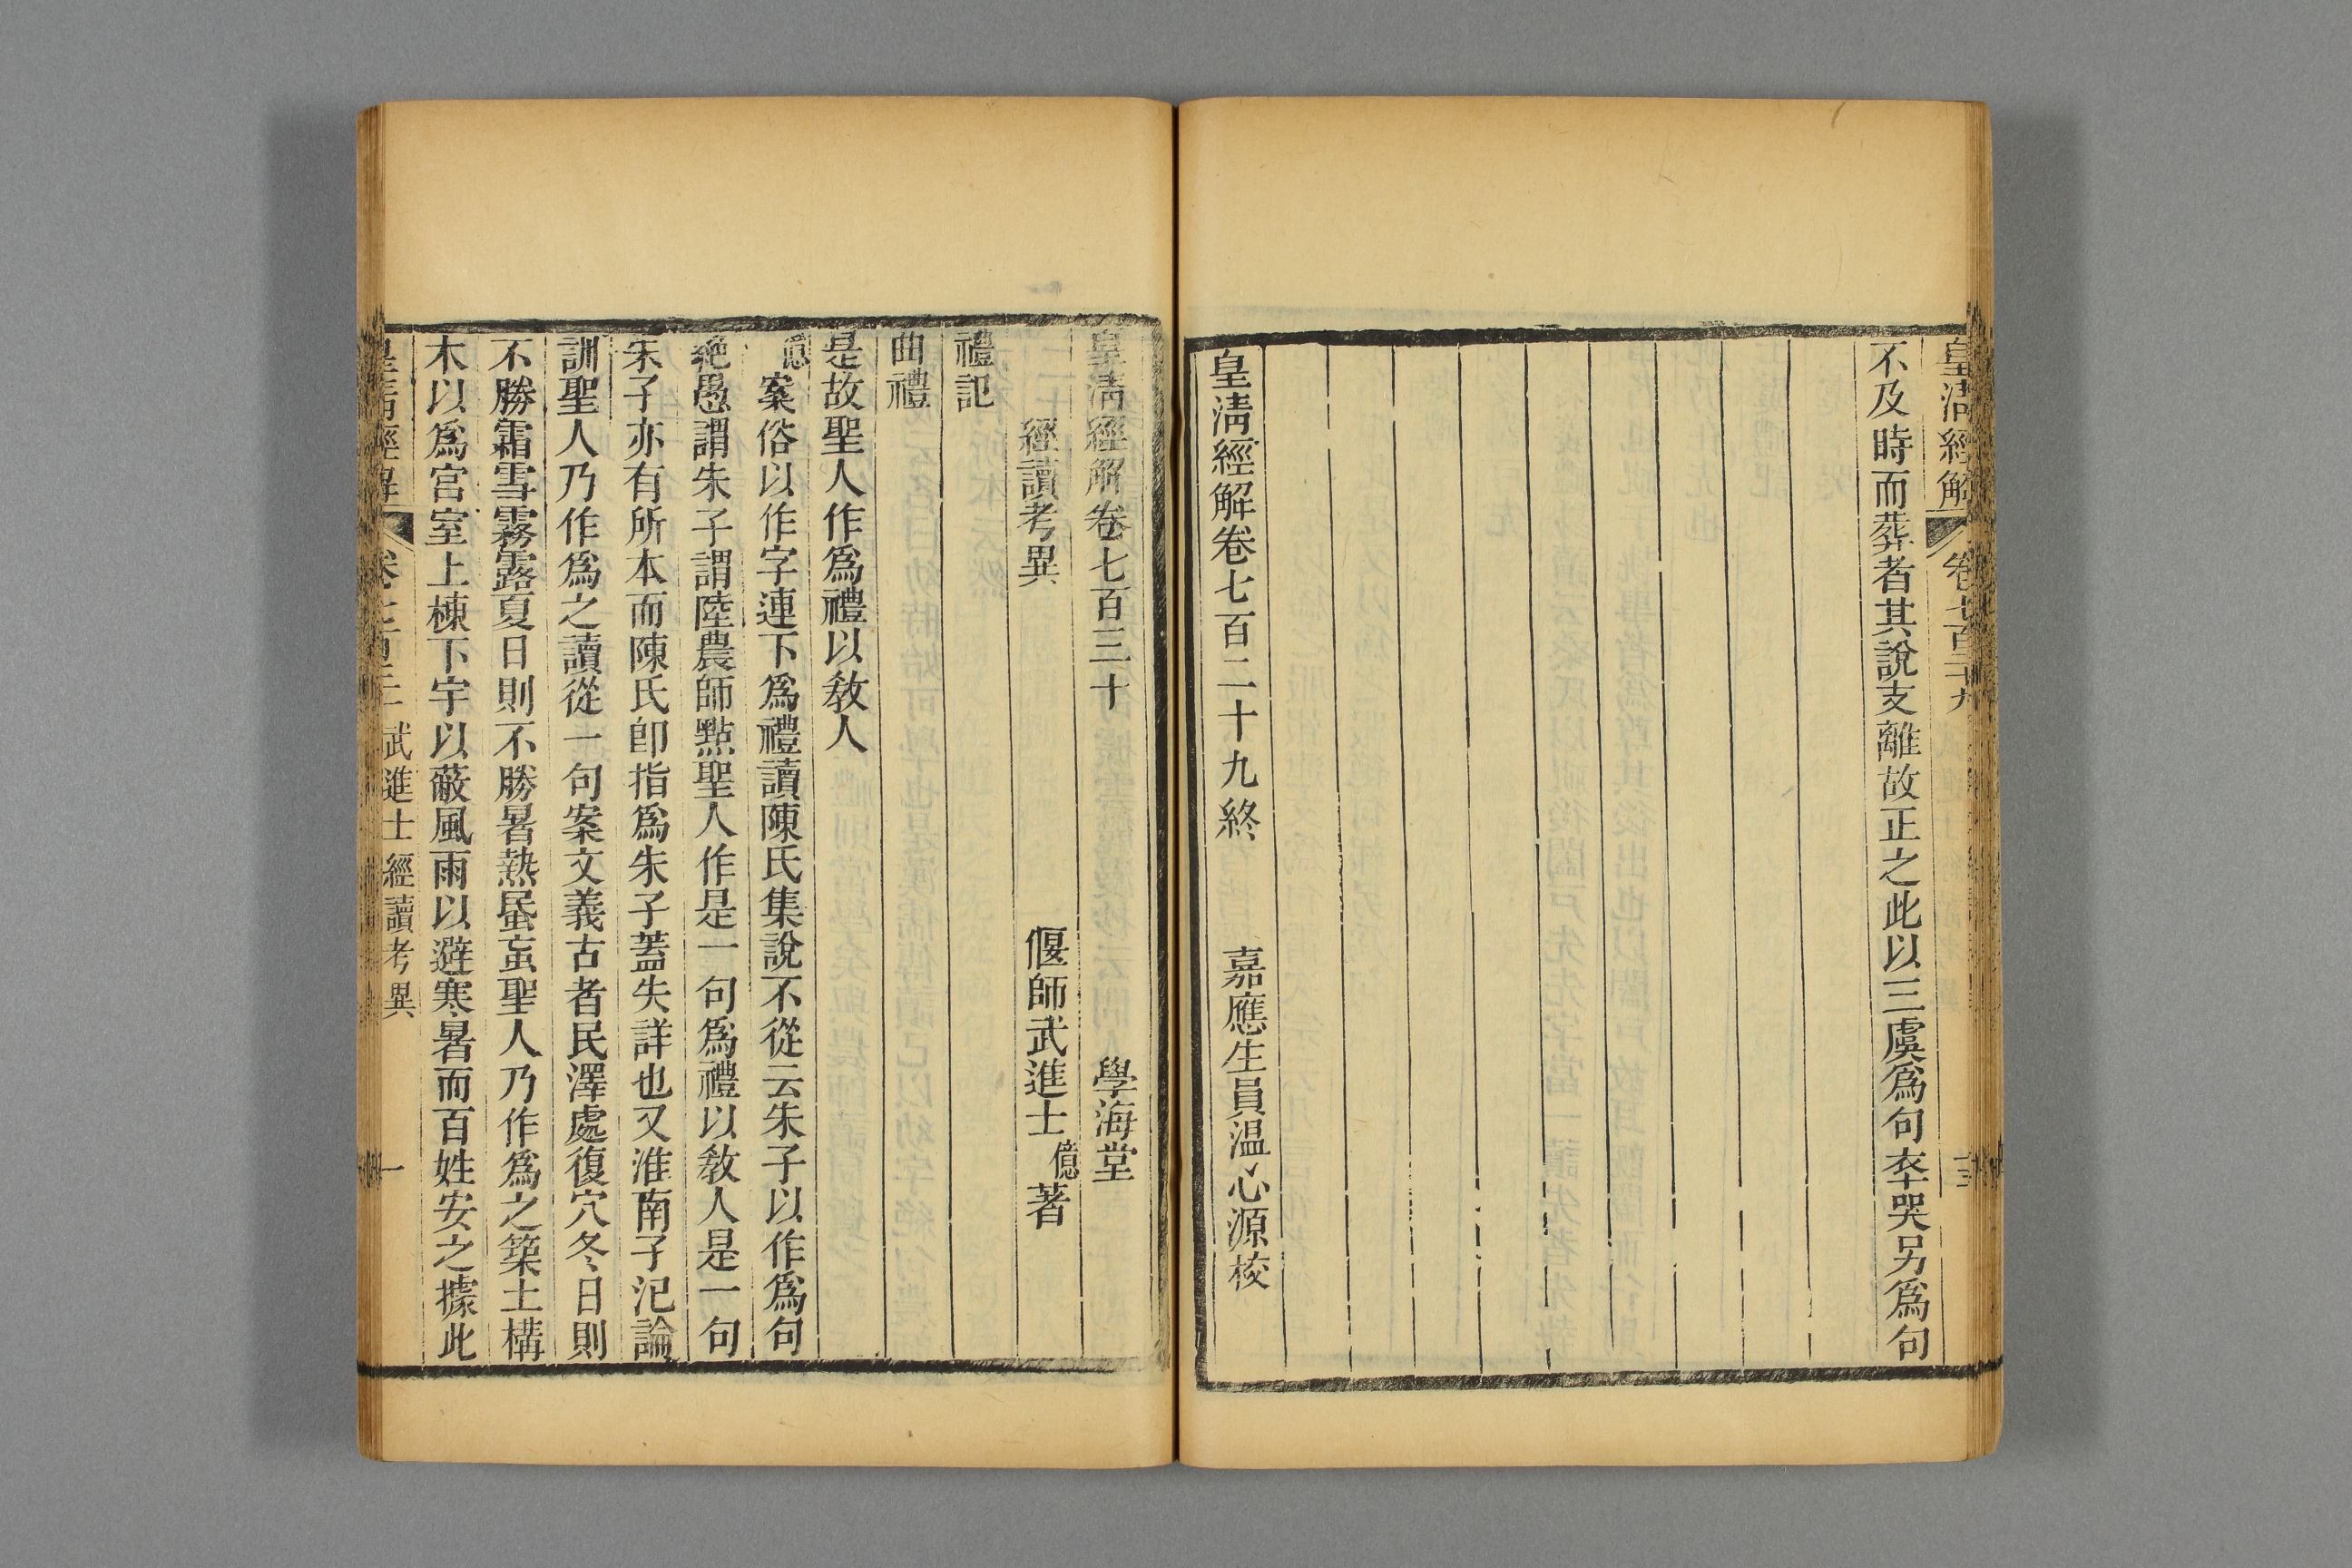 皇清經解 卷七百二十九 十三
不及時而葬者其說支離故正之此以三虞爲句卒哭另爲句
皇清經解卷七百二十九終 嘉應生員温心源校
皇清經解卷七百三十 學海堂
經讀考異 偃師武進士億著
禮記
曲禮
是故聖人作爲禮以敎人
億案俗以作字連下爲禮讀陳氏集說不從云朱子以作爲句
絶愚謂朱子謂陸農師點聖人作是一句爲禮以敎人是一句
朱子亦有所本而陳氏卽指爲朱子蓋失詳也又淮南子氾論
訓聖人乃作爲之讀從一句案文義古者民澤處復穴冬日則
不勝霜雪霧露夏日則不勝暑熱蟁蝱聖人乃作爲之築土構
木以爲宮室上棟下宇以蔽風雨以避寒暑而百姓安之據此
皇清經解 卷七百三十 武進士經讀考異 一